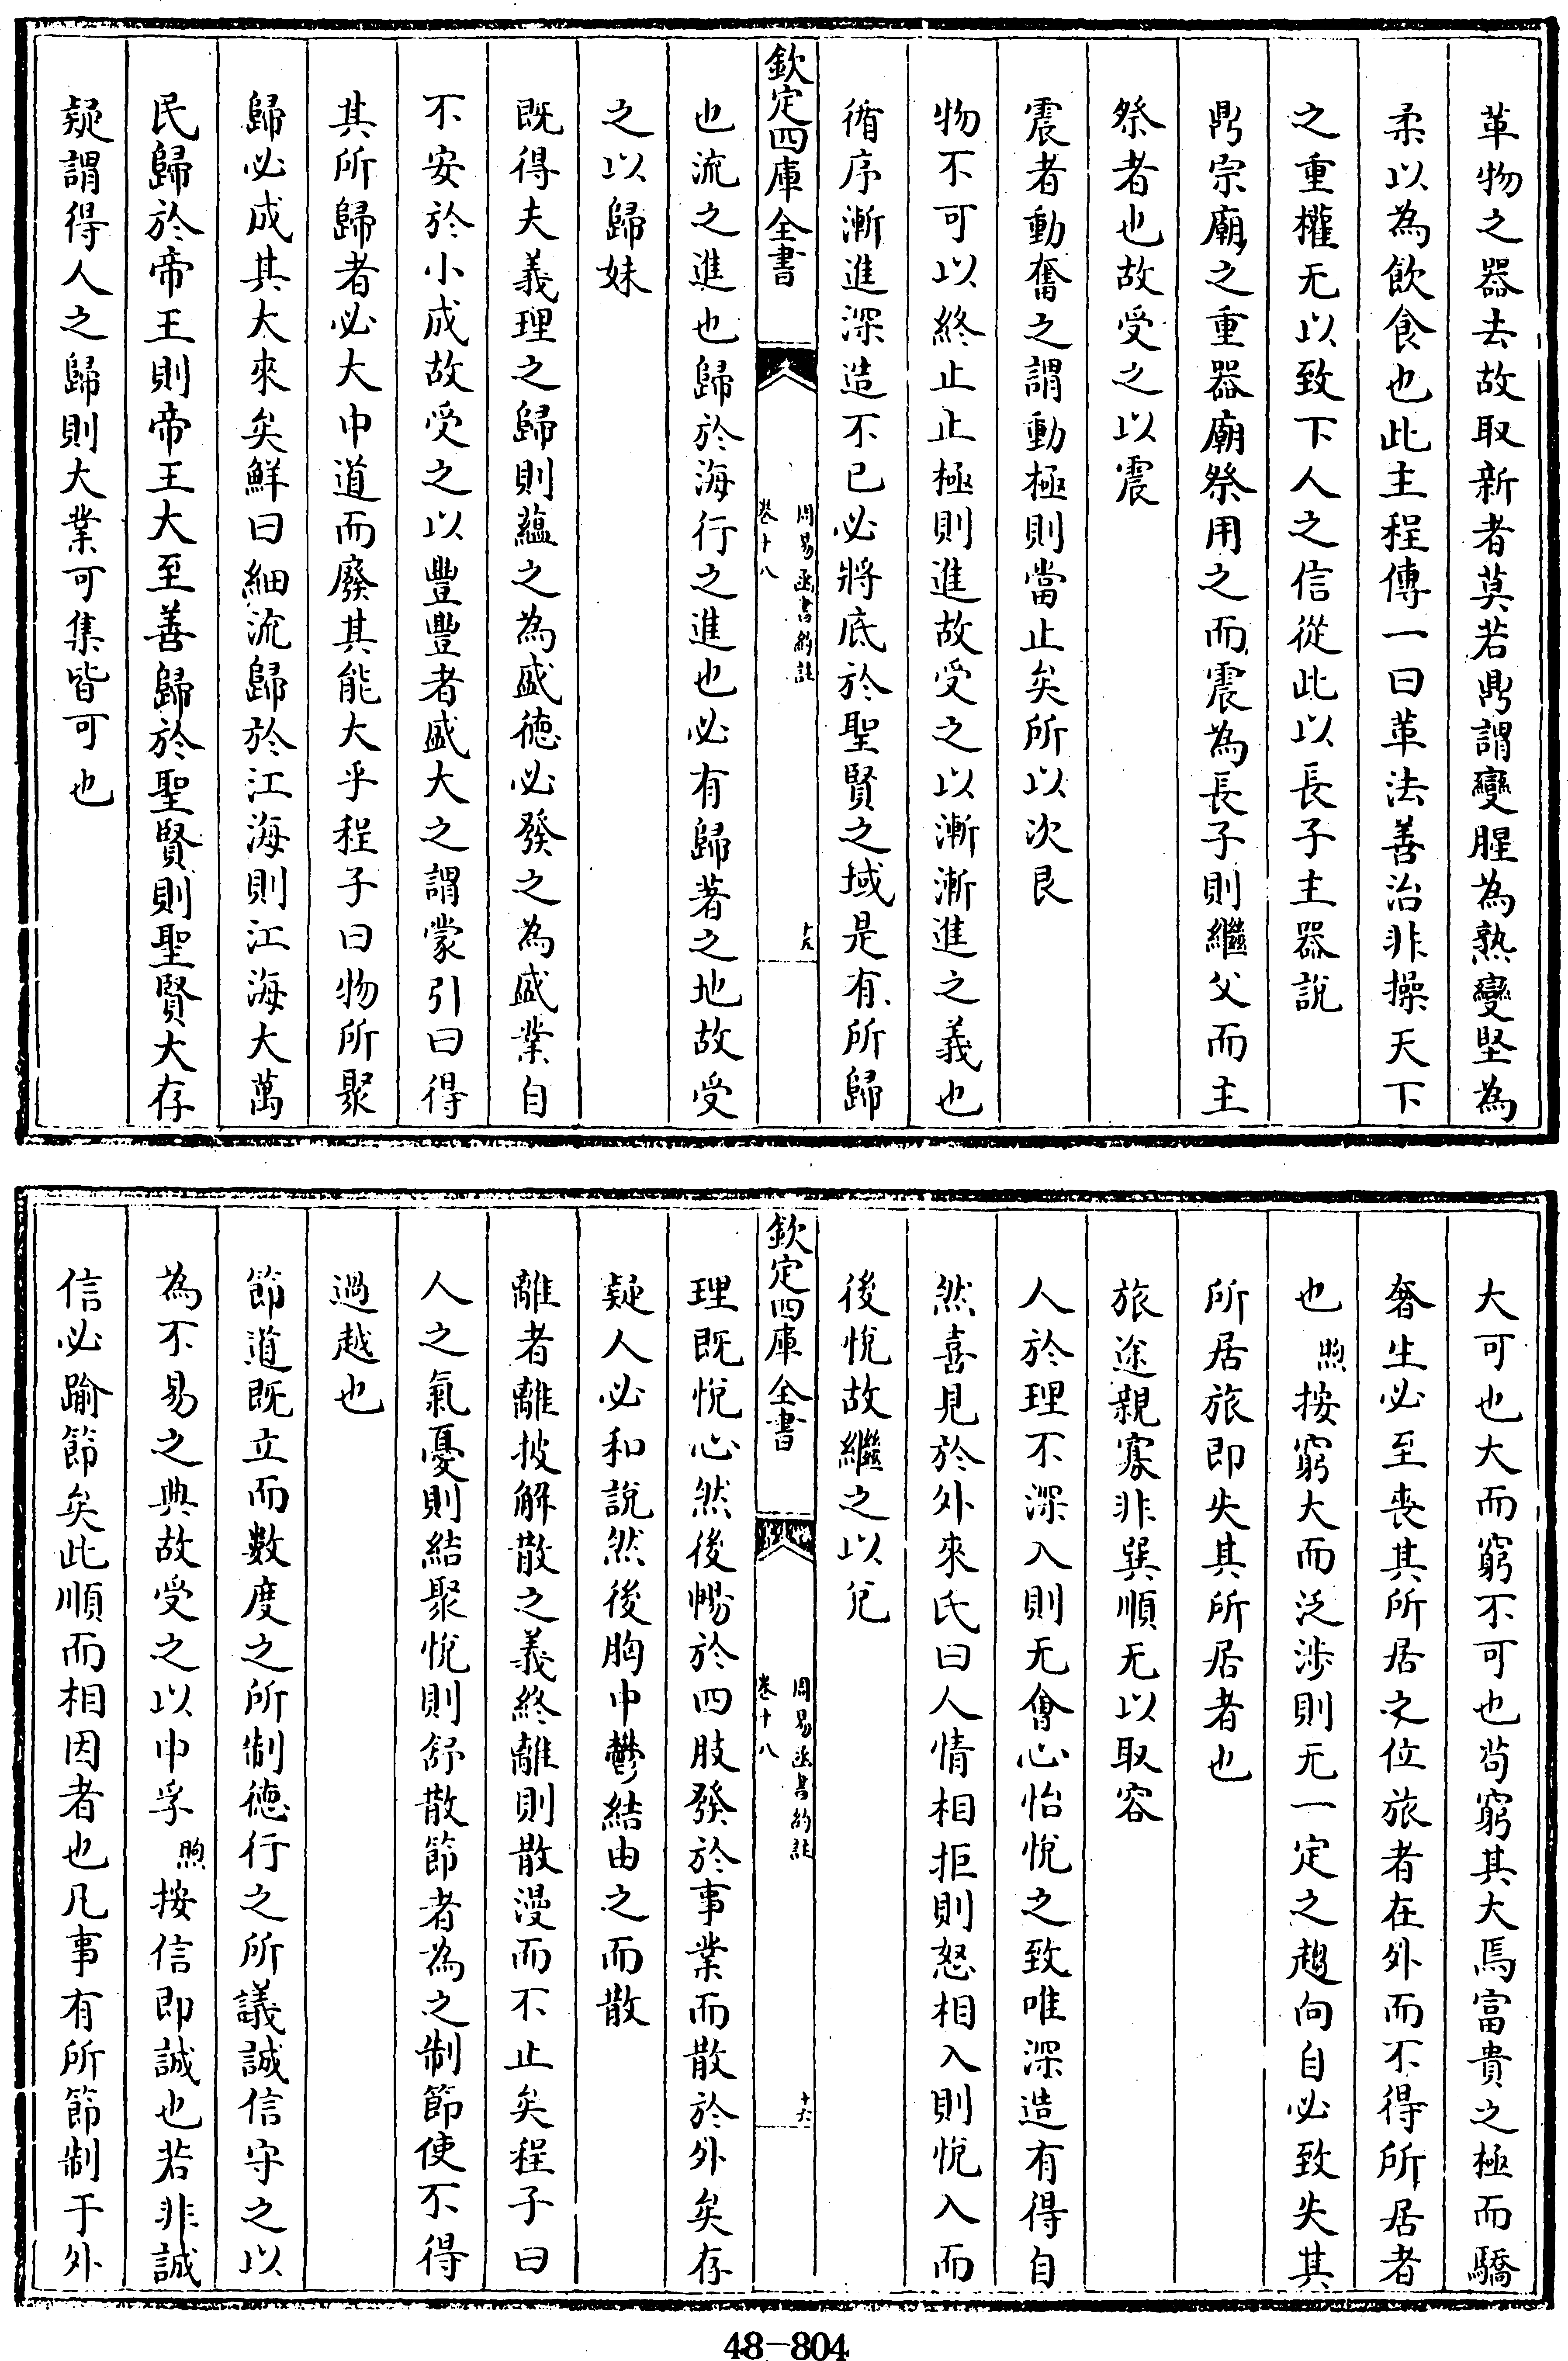 革物之器去故取新者莫若鼎謂變腥為熟變堅為
柔以為飲食也此主程傳一曰革法善治非操天下
之重權无以致下人之信從此以長子主器說
鼎宗廟之重器廟祭用之而震為長子則繼父而主
祭者也故受之以震
震者動奮之謂動極則當止矣所以次艮
物不可以終止止極則進故受之以漸漸進之義也
循序漸進深造不已必將底於聖賢之域是有所歸
欽定四庫全書
周易函書約註
卷十八
十五
也流之進也歸於海行之進也必有歸著之地故受
之以歸妹
既得夫義理之歸則蘊之為盛德必發之為盛業自
不安於小成故受之以豐豐者盛大之謂蒙引曰得
其所歸者必大中道而廢其能大乎程子曰物所聚
歸必成其大來矣鮮曰細流歸於江海則江海大萬
民歸於帝王則帝王大至善歸於聖賢則聖賢大存
疑謂得人之歸則大業可集皆可也
大可也大而窮不可也茍窮其大焉富貴之極而驕
奢生必至喪其所居之位旅者在外而不得所居者
也煦按窮大而泛涉則无一定之趨向自必致失其
所居旅即失其所居者也
旅途親寡非巽順无以取容
人於理不深入則无會心怡悅之致唯深造有得自
然喜見於外來氏曰人情相拒則怒相入則悅入而
後悅故繼之以兌
欽定四庫全書
周易函書約註
卷十八
十六
理既悅心然後暢於四肢發於事業而散於外矣存
疑人必和說然後胸中鬱結由之而散
離者離披解散之義終離則散漫而不止矣程子曰
人之氣憂則結聚悅則舒散節者為之制節使不得
過越也
節道既立而數度之所制德行之所議誠信守之以
為不易之典故受之以中孚煦按信即誠也若非誠
信必踰節矣此順而相因者也凡事有所節制于外
48-804